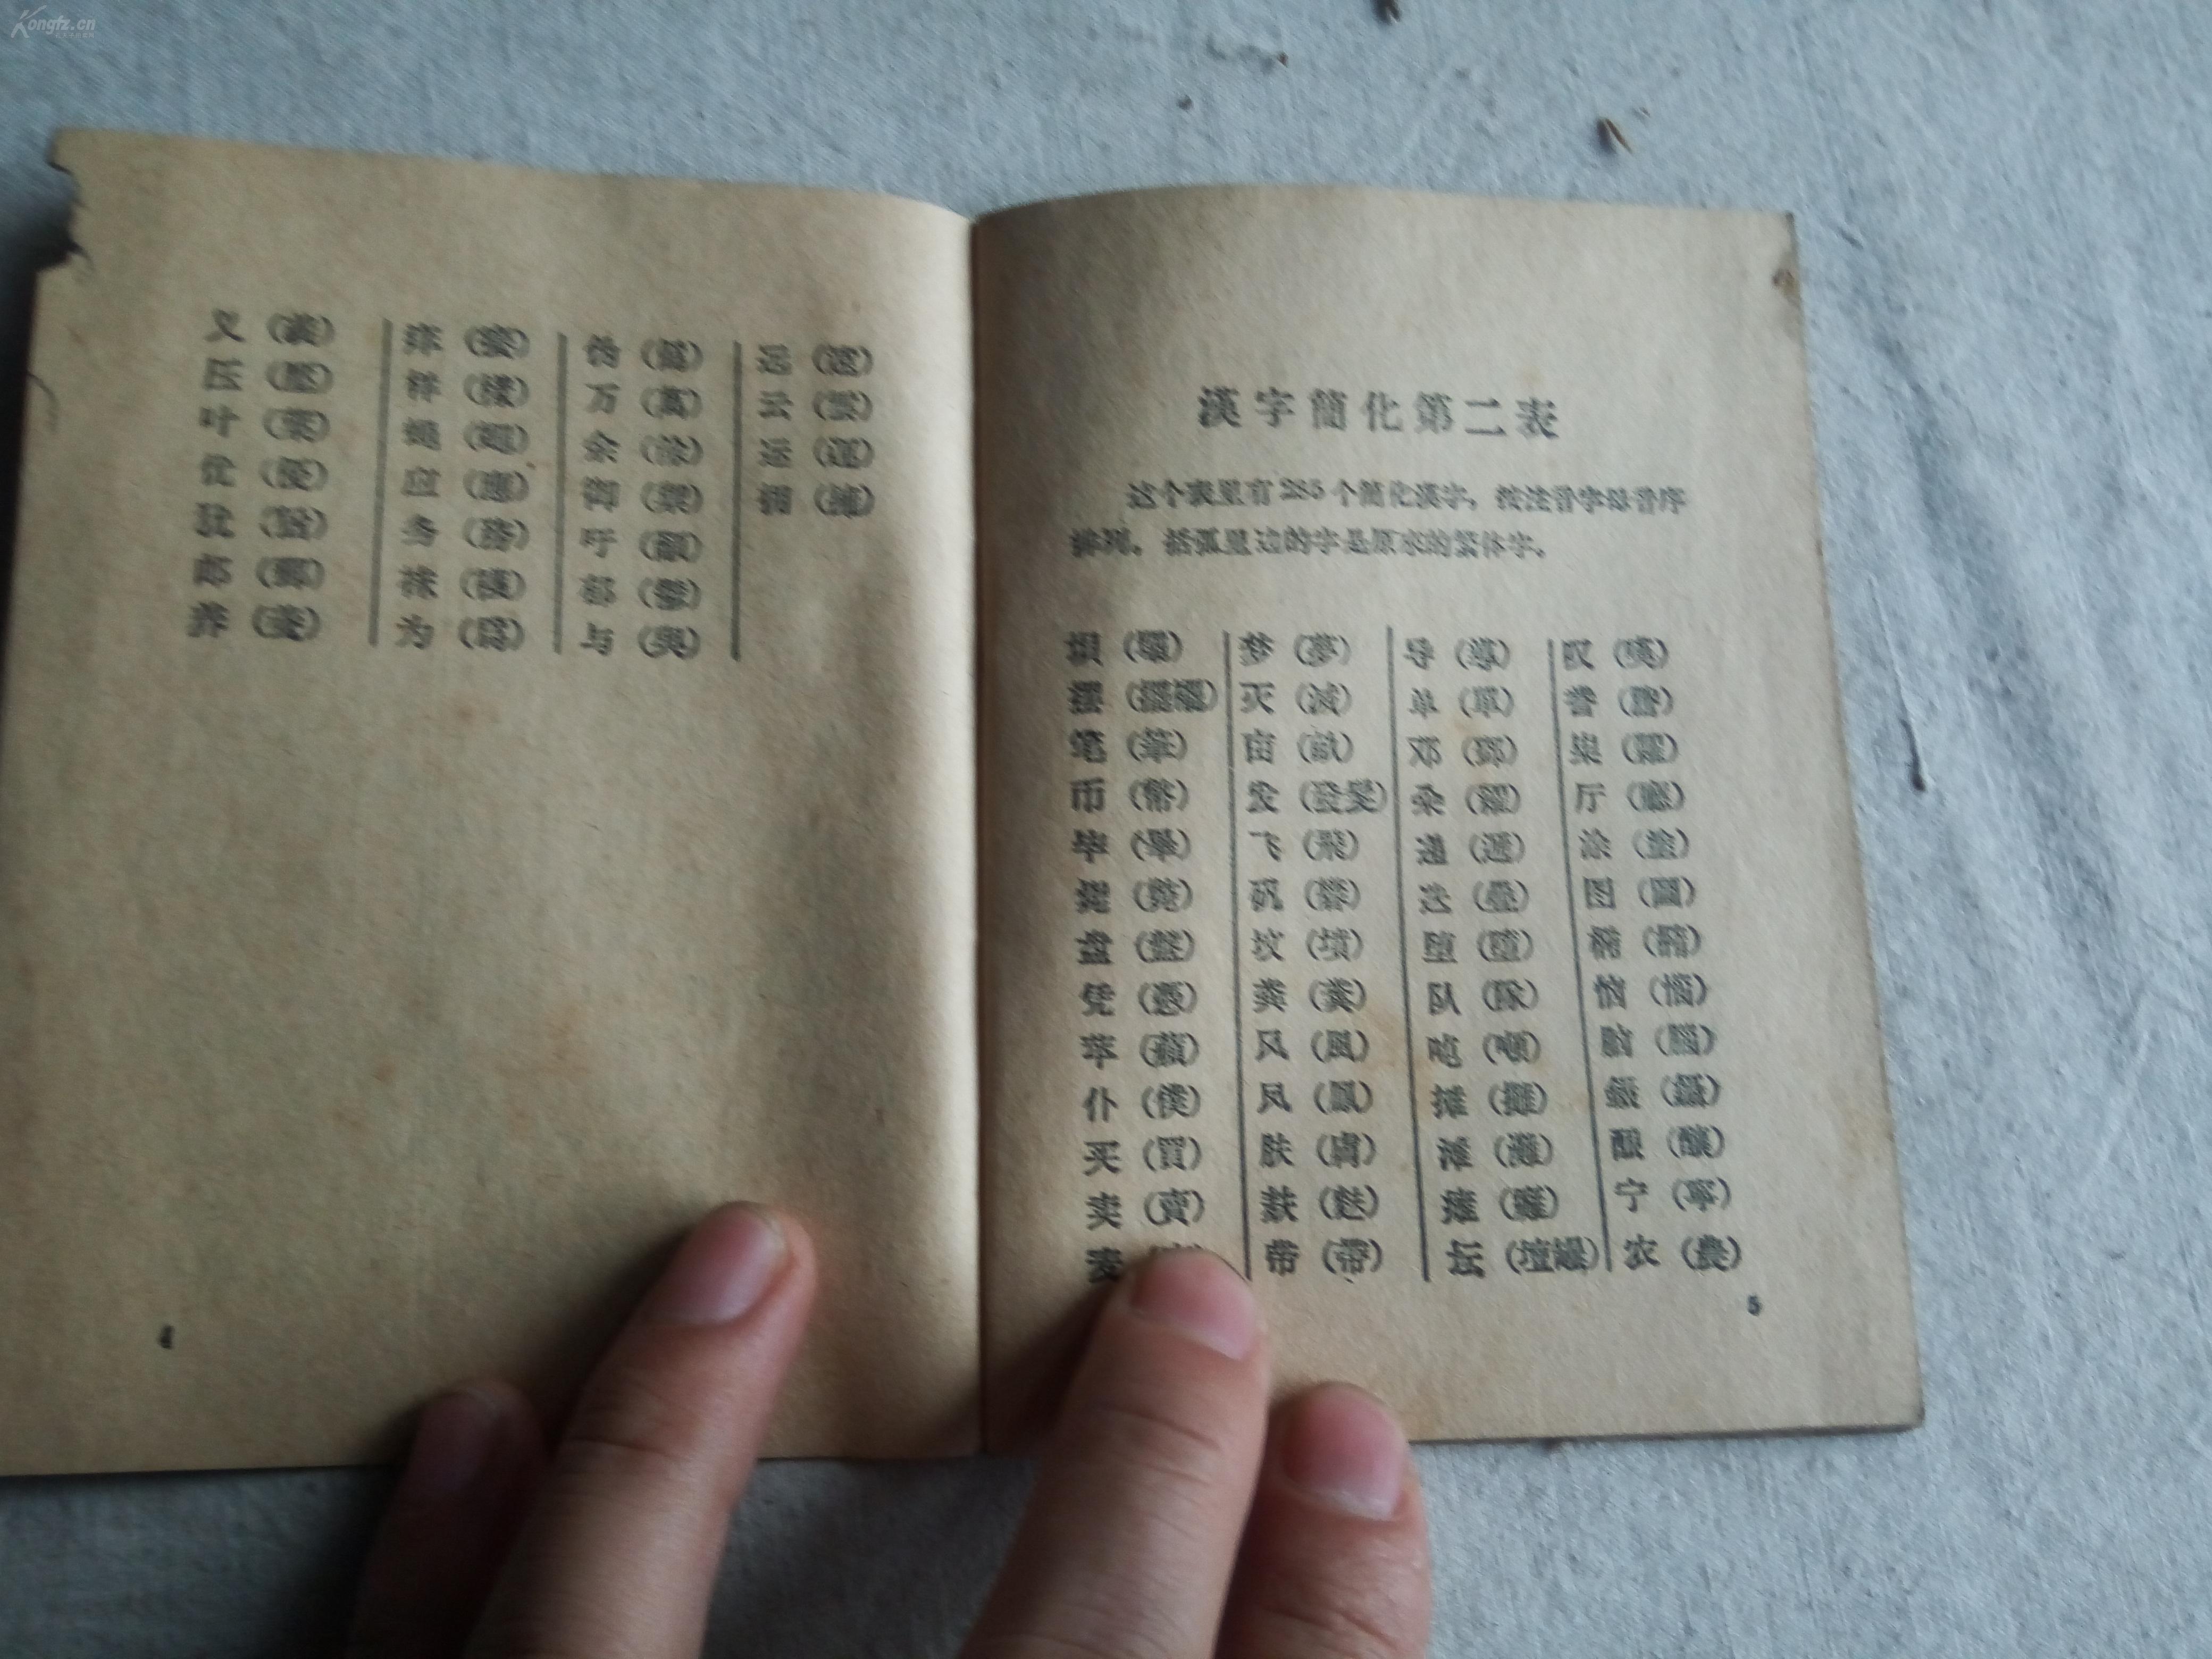 Kongfz.cn
义（義）
压（壓）
叶（葉）
优（優）
犹（猶）
邮（郵）
养（養）
痒（癢）
样（樣）
蝇（蠅）
应（應）
务（務）
袜（襪）
为（爲）
伪（僞）
万（萬）
余（餘）
御（禦）
吁（籲）
郁（鬱）
与（與）
远（遠）
云（雲）
运（運）
拥（擁）
4
漢字簡化第二表
这个表里有285个简化漢字，按注音字母音序
排列。括弧里边的字是原来的繁体字。
坝（壩）
摆（擺襬）
笔（筆）
币（幣）
毕（畢）
毙（斃）
盘（盤）
凭（憑）
苹（蘋）
仆（僕）
买（買）
卖（賣）
麦
梦（夢）
灭（滅）
亩（畝）
发（發髮）
飞（飛）
矾（礬）
坟（墳）
粪（糞）
风（風）
凤（鳳）
肤（膚）
麸（麩）
带（帶）
导（導）
单（單）
邓（鄧）
籴（糴）
递（遞）
迭（疊）
堕（墮）
队（隊）
吨（噸）
摊（攤）
滩（灘）
瘫（癱）
坛（壇罎）
叹（嘆）
誊（謄）
粜（糶）
厅（廳）
涂（塗）
图（圖）
椭（橢）
恼（惱）
脑（腦）
镊（鑷）
酿（釀）
宁（寧）
农（農）
5